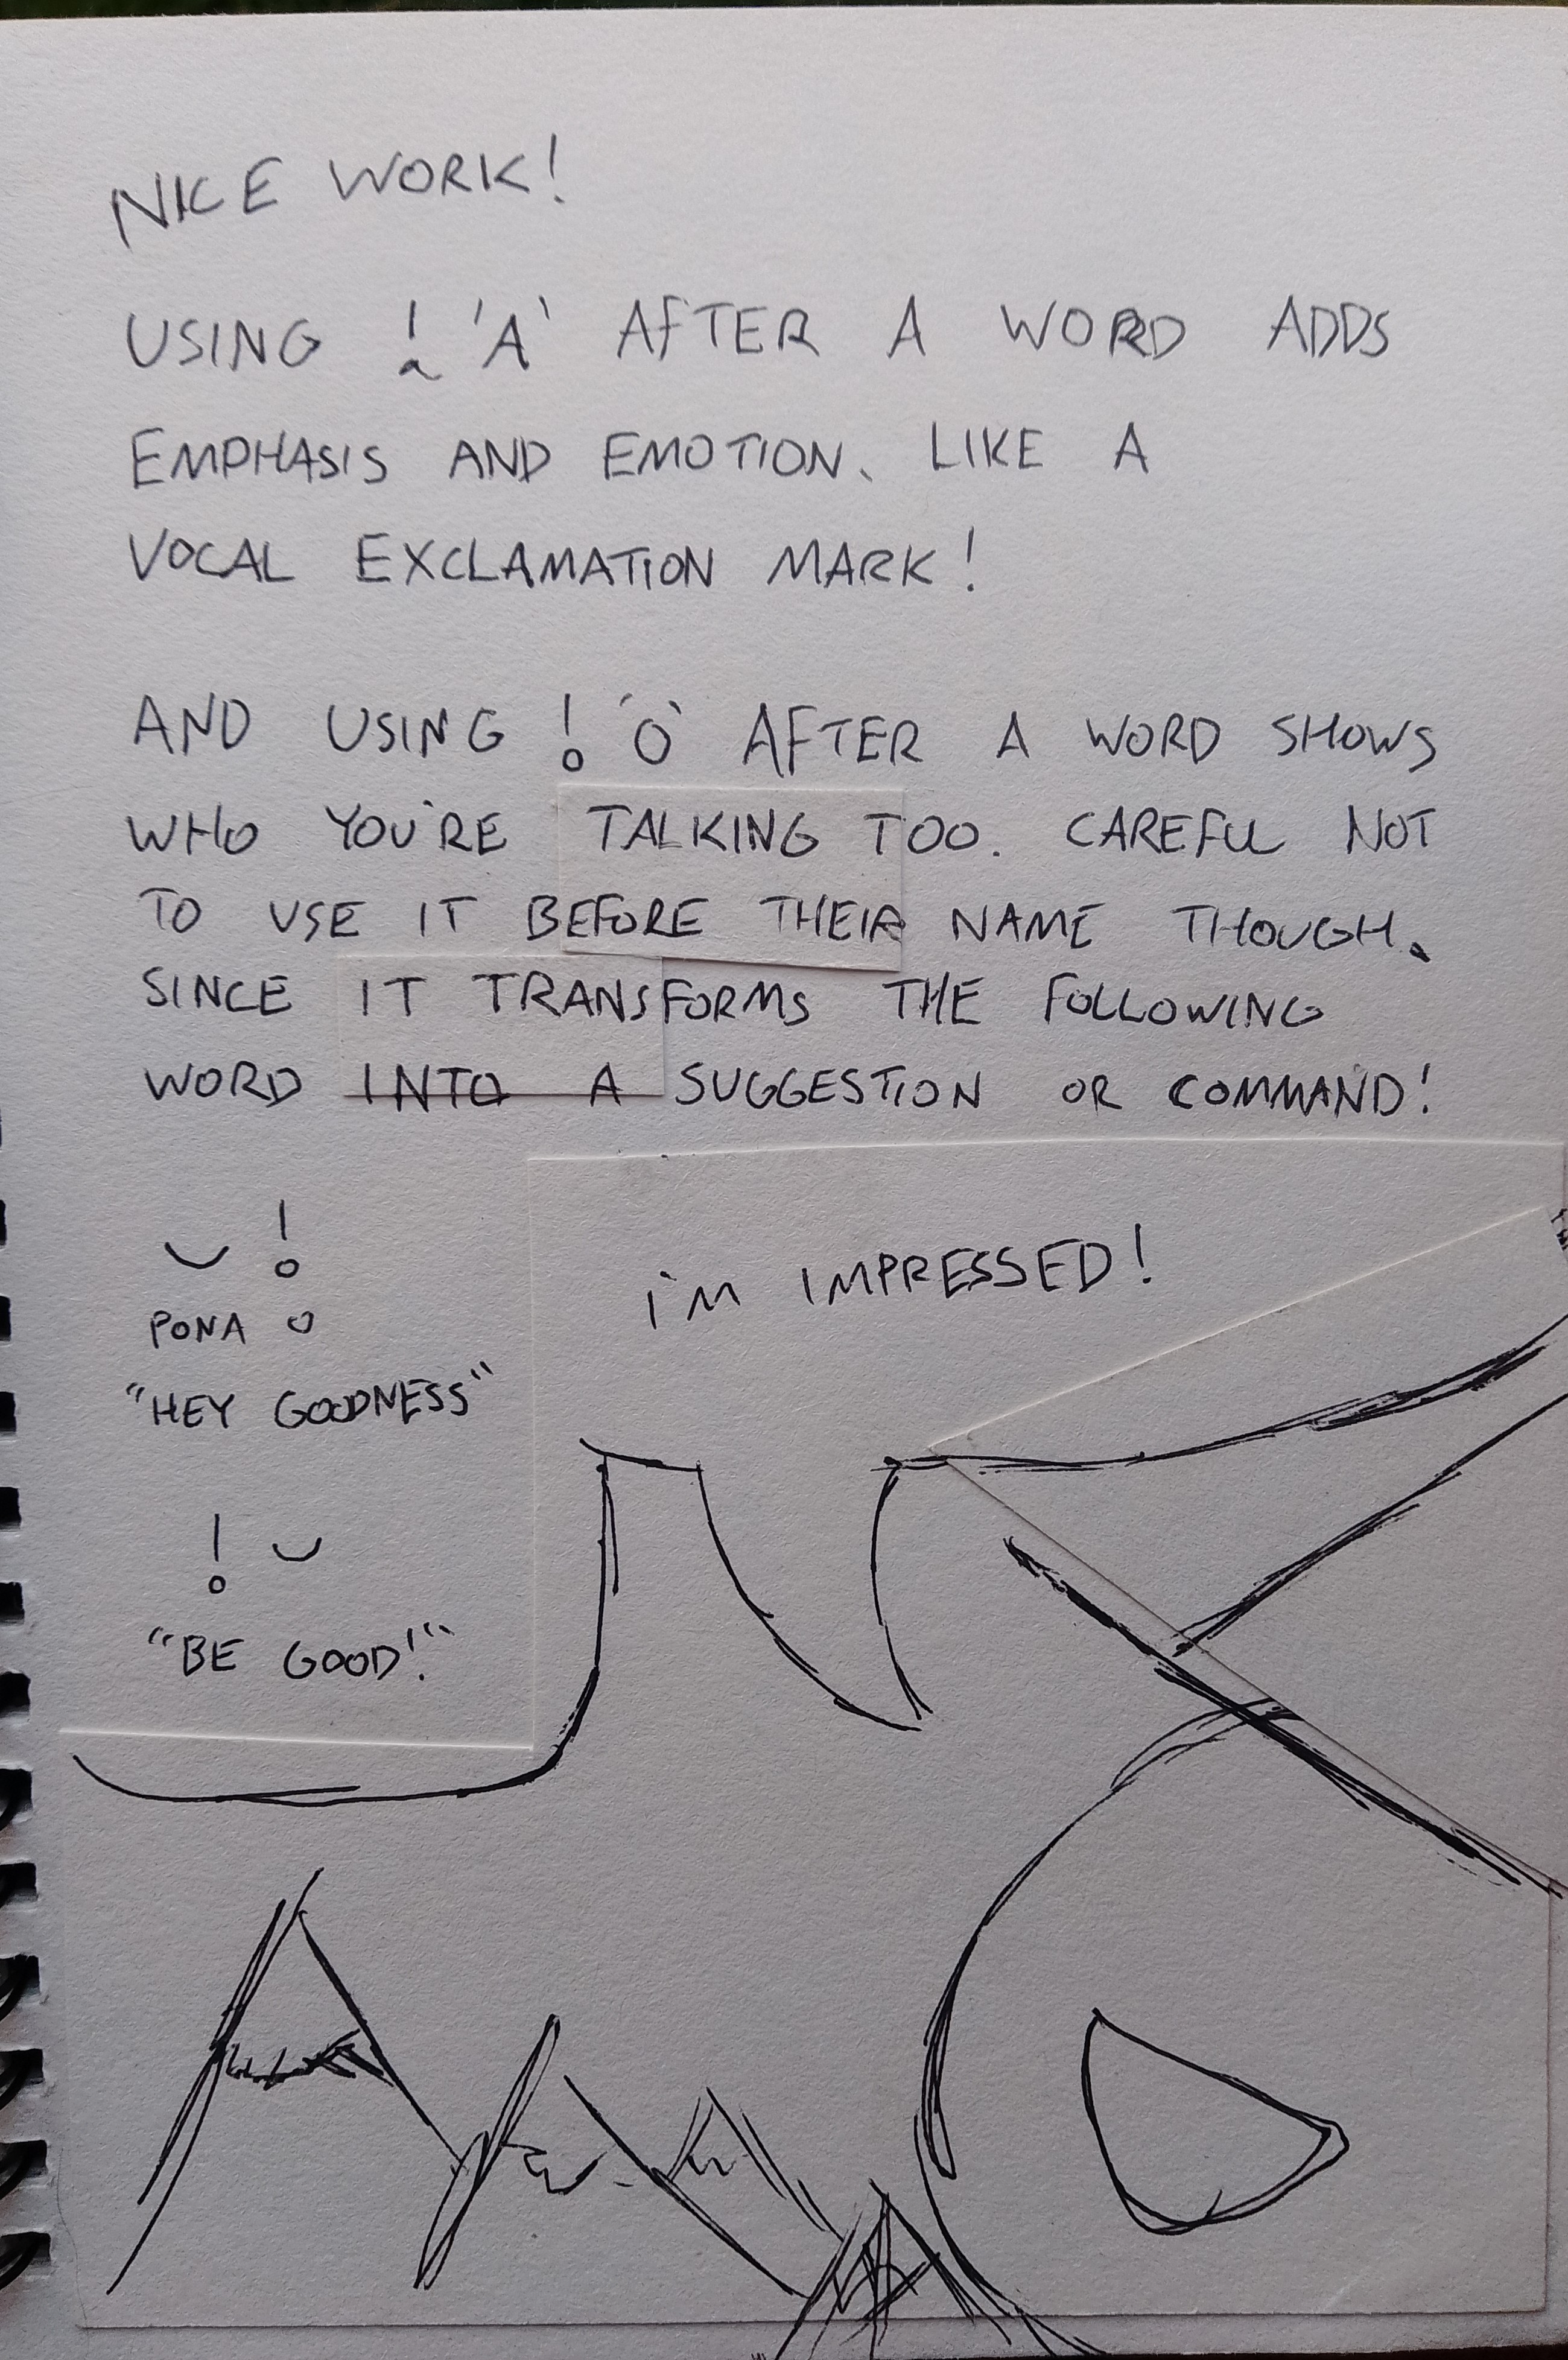 NICE WORK!
USING 'A' AFTER A WORD ADDS
EMPHASIS AND EMOTION. LIKE A
VOCAL EXCLAMATION MARK!
AND USING 'O' AFTER A WORD SHOWS
WHO YOU'RE TALKING TOO. CAREFUL NOT
TO USE IT BEFORE THEIR NAME THOUGH.
SINCE IT TRANSFORMS THE FOLLOWING
WORD INTO A SUGGESTION OR COMMAND!
PONA O
"HEY GOODNESS"
"BE GOOD!"
I'M IMPRESSED!